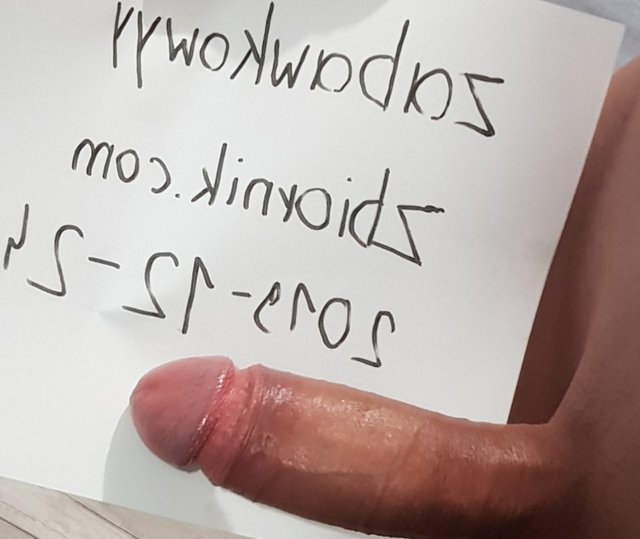 zabawkowyy
zbiornik.com
2019-12-24